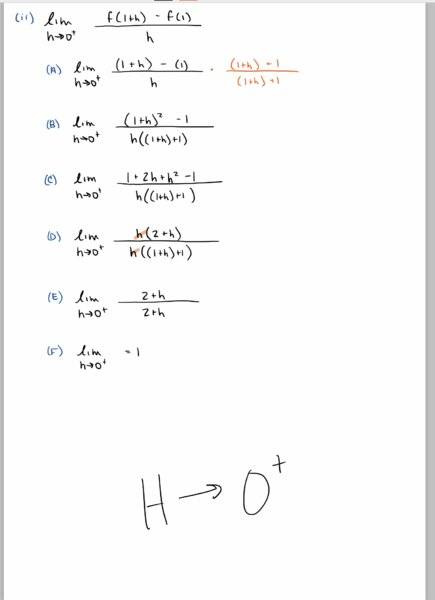 (ii) lim h→0⁺ (f(1+h) - f(1)) / h
(A) lim h→0⁺ ((1+h) - (1)) / h · ((1+h) + 1) / ((1+h) + 1)
(B) lim h→0⁺ ((1+h)² - 1) / (h((1+h)+1))
(C) lim h→0⁺ (1 + 2h + h² - 1) / (h((1+h)+1))
(D) lim h→0⁺ (h(2+h)) / (h((1+h)+1))
(E) lim h→0⁺ (2+h) / (2+h)
(F) lim h→0⁺ = 1
H → 0⁺